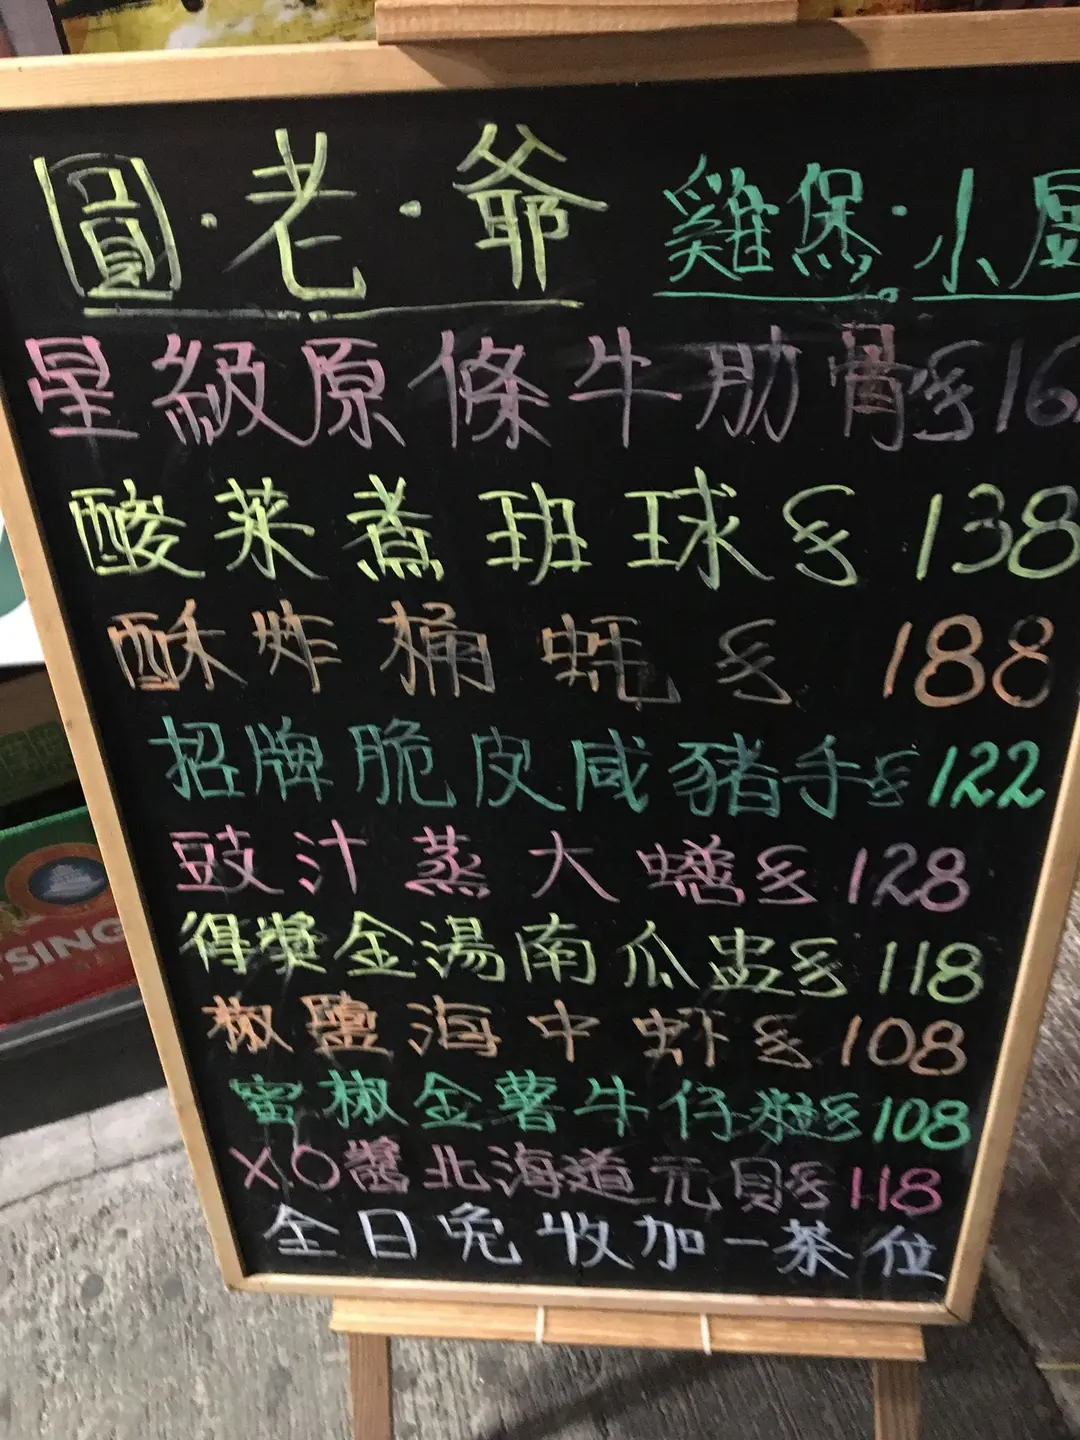 圓·老·爺 雞煲·小廚
星級原條牛肋骨$16
酸菜煮班球$138
酥炸桶蚝$188
招牌脆皮咸豬手$122
豉汁蒸大蟮$128
得獎金湯南瓜盅$118
椒鹽海中虾$108
蜜椒金薯牛仔粒$108
X.O醬北海道元貝$118
全日免收加一茶位
TSING